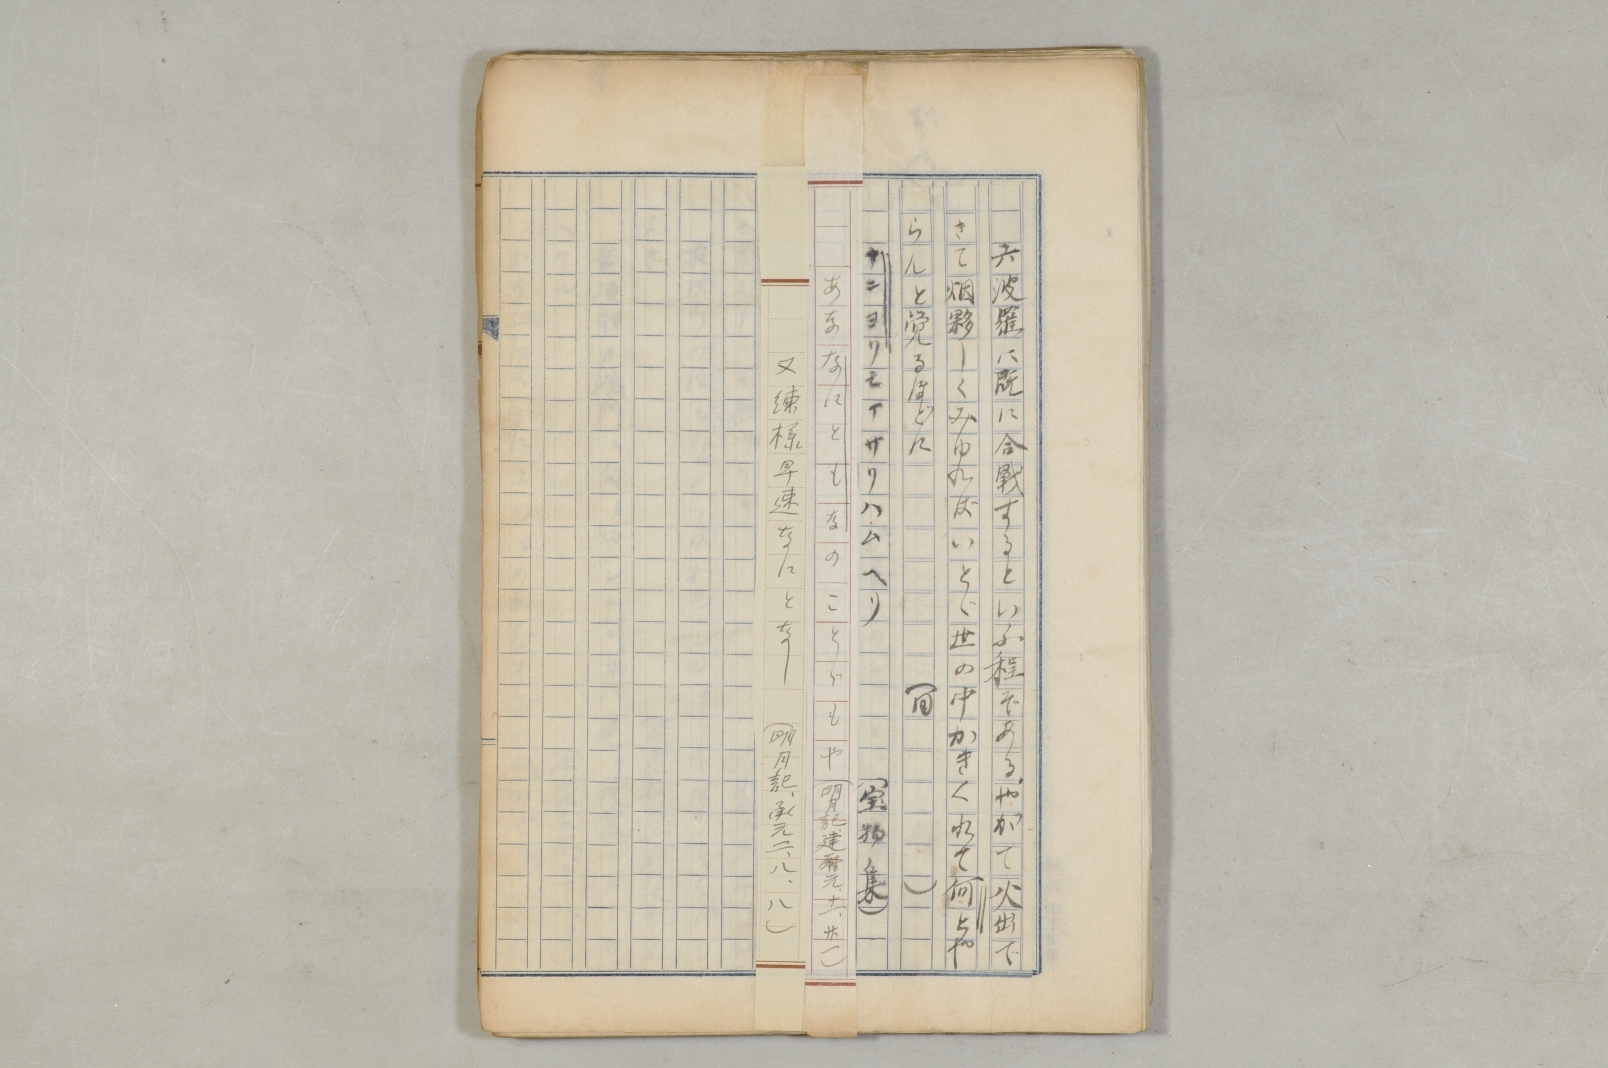 六波羅に既に合戦するといふ程こそある、やがて火出で
きて烟夥しくみゆれば、いとど世の中かきくれて何とや
らんと覚るほどに (同 )
ナニヨリモイザリハムヘリ (宝物集)
あなないともなのことどもや(明月記、建暦元、十一、廿一)
又練様早速なにとなし (明月記、承元二、八、八)